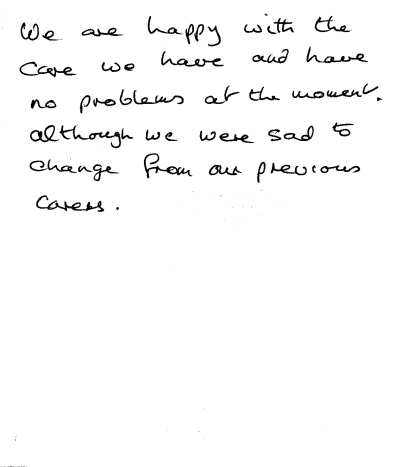 We are happy with the
care we have and have
no problems at the moment.
although we were sad to
change from our previous
carers.